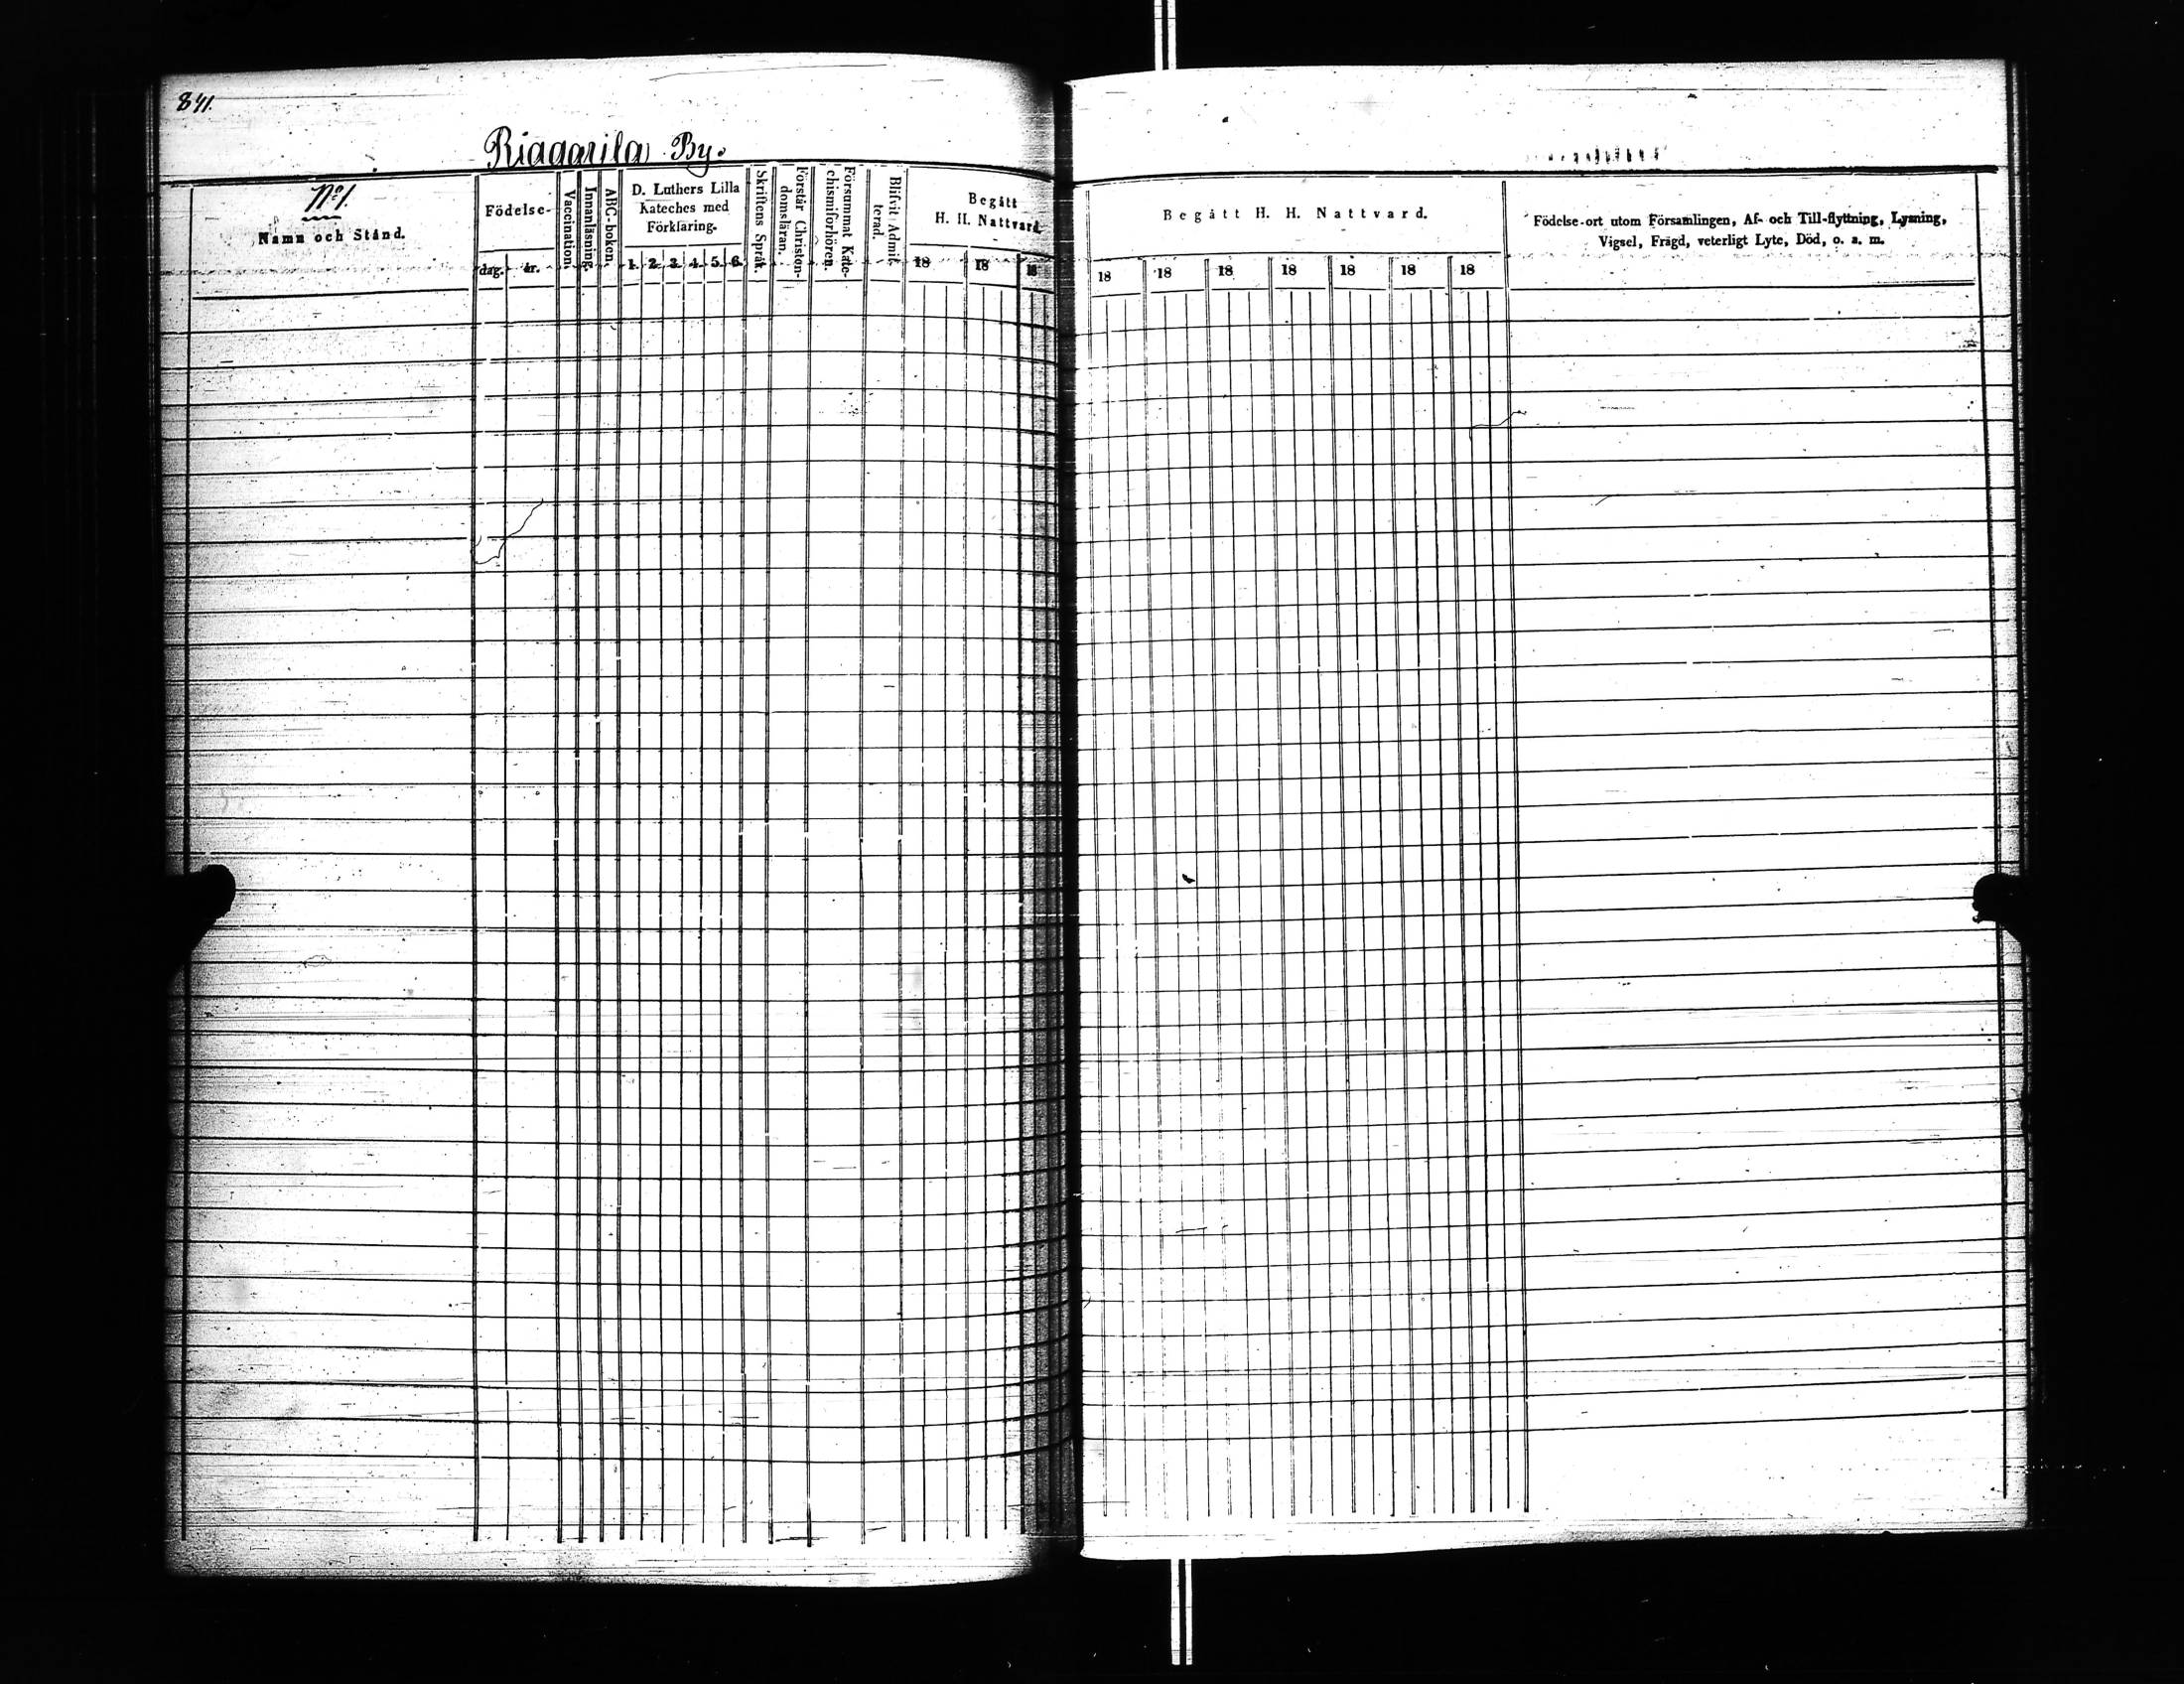 841.
Riaggrila By.
No 1.
Namn och Stånd.
Födelse-
dag. år.
Vaccination.
Innanläsning.
ABC-boken.
D. Luthers Lilla
Kateches med
Förklaring.
1. 2. 3. 4. 5. 6.
Skriftens Språk.
Förstår Christen-
domsläran.
Försummat Kate-
chismiförhören.
Blifvit Admit-
terad.
Begått
H. H. Nattvard.
18 18 18
Begått H. H. Nattvard.
18 18 18 18 18 18 18
Födelse-ort utom Församlingen, Af- och Till-flyttning, Lysning,
Vigsel, Frägd, veterligt Lyte, Död, o. s. m.